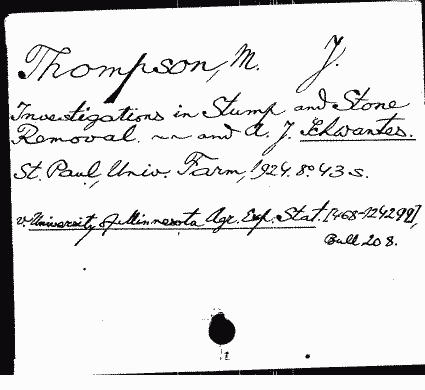 Thompson, M. J.
Investigations in Stump and Stone
Removal. ~~ and A. J. Schwantes.
St. Paul, Univ. Farm, 1924. 8° 43 s.
v. University of Minnesota Agr. Exp. Stat. [468-124299],
Bull 208.